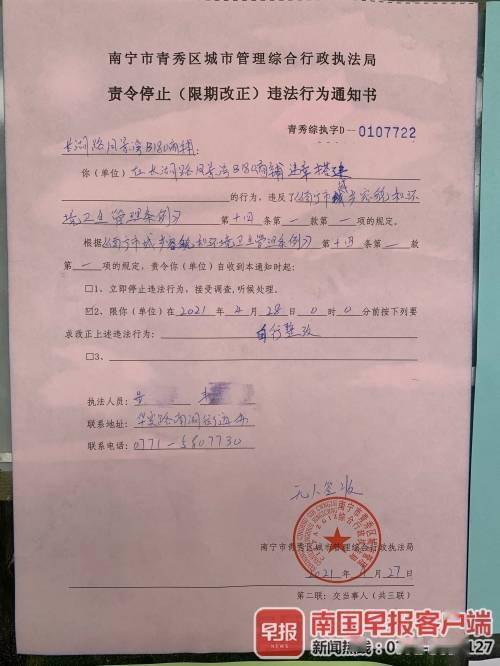 南宁市青秀区城市管理综合行政执法局
责令停止（限期改正）违法行为通知书
青秀综执字D—0107722
长湖路风景湾B180商铺：
你（单位）在长湖路风景湾B180商铺违章搭建
的行为，违反了《南宁市城市容貌和环
境卫生管理条例》第十四条第一款第一项的规定。
根据《南宁市城市容貌和环境卫生管理条例》第十四条第一款
第一项的规定，责令你（单位）自收到本通知时起：
□1、立即停止违法行为，接受调查，听候处理。
☑2、限你（单位）在2021年4月28日0时0分前按下列要
求改正上述违法行为：自行整改
□3、
执法人员：
联系地址：
联系电话：0771-5807730
无人签收
南宁市青秀区城市管理综合行政执法局
2021年 月27日
第二联：交当事人（共三联）
早报 南国早报客户端
NEWS 新闻热线：0 127